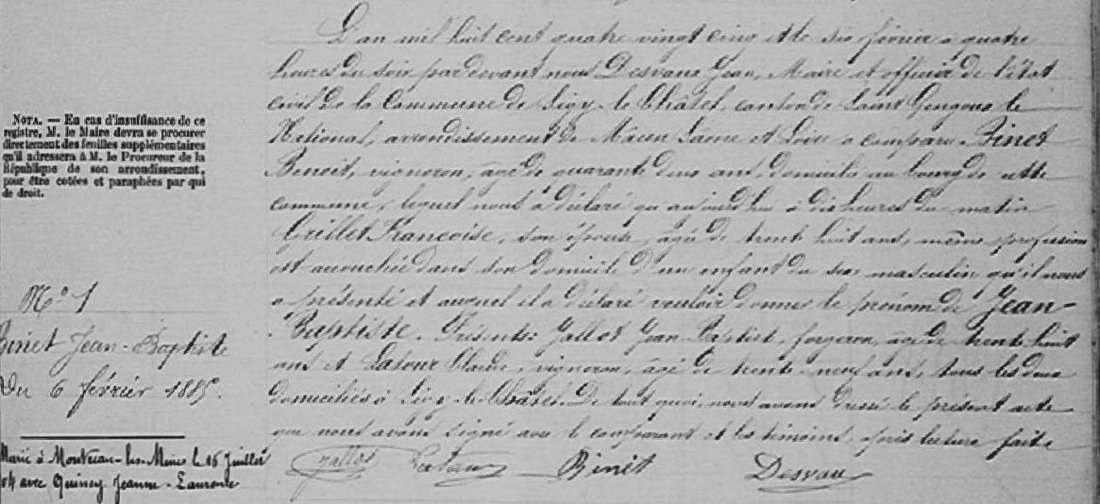 L'an mil huit cent quatre vingt cinq et le six février à quatre
heures du soir par devant nous Desvaux Jean, Maire et officier de l'état
civil de la Commune de Sigy-le-Châtel, canton de Saint Gengoux le
National, arrondissement de Mâcon Saône et Loire a comparu Binet
Benoit, vigneron, âgé de quarante deux ans, domicilié au bourg de cette
commune, lequel nous a déclaré qu'aujourd'hui à dix heures du matin
Grillet Françoise, son épouse, âgée de trente huit ans, même profession
est accouchée dans son domicile d'un enfant du sexe masculin qu'il nous
a présenté et auquel il a déclaré vouloir donner le prénom de Jean-
Baptiste. Présents: Jallot Jean Baptiste, forgeron, âgé de trente huit
ans et Latour Claude, vigneron, âgé de trente-neuf ans, tous les deux
domiciliés à Sigy-le-Châtel. De tout quoi, nous avons dressé le présent acte
que nous avons signé avec le comparant et les témoins, après lecture faite
Jallot Latour Binet Desvaux
NOTA. — En cas d'insuffisance de ce
registre, M. le Maire devra se procurer
directement des feuilles supplémentaires
qu'il adressera à M. le Procureur de la
République de son arrondissement,
pour être cotées et paraphées par qui
de droit.
N° 1
Binet Jean-Baptiste
Du 6 février 1885.
Marié à Montceau-les-Mines le 16 Juillet
04 avec Jeanne-Laurence